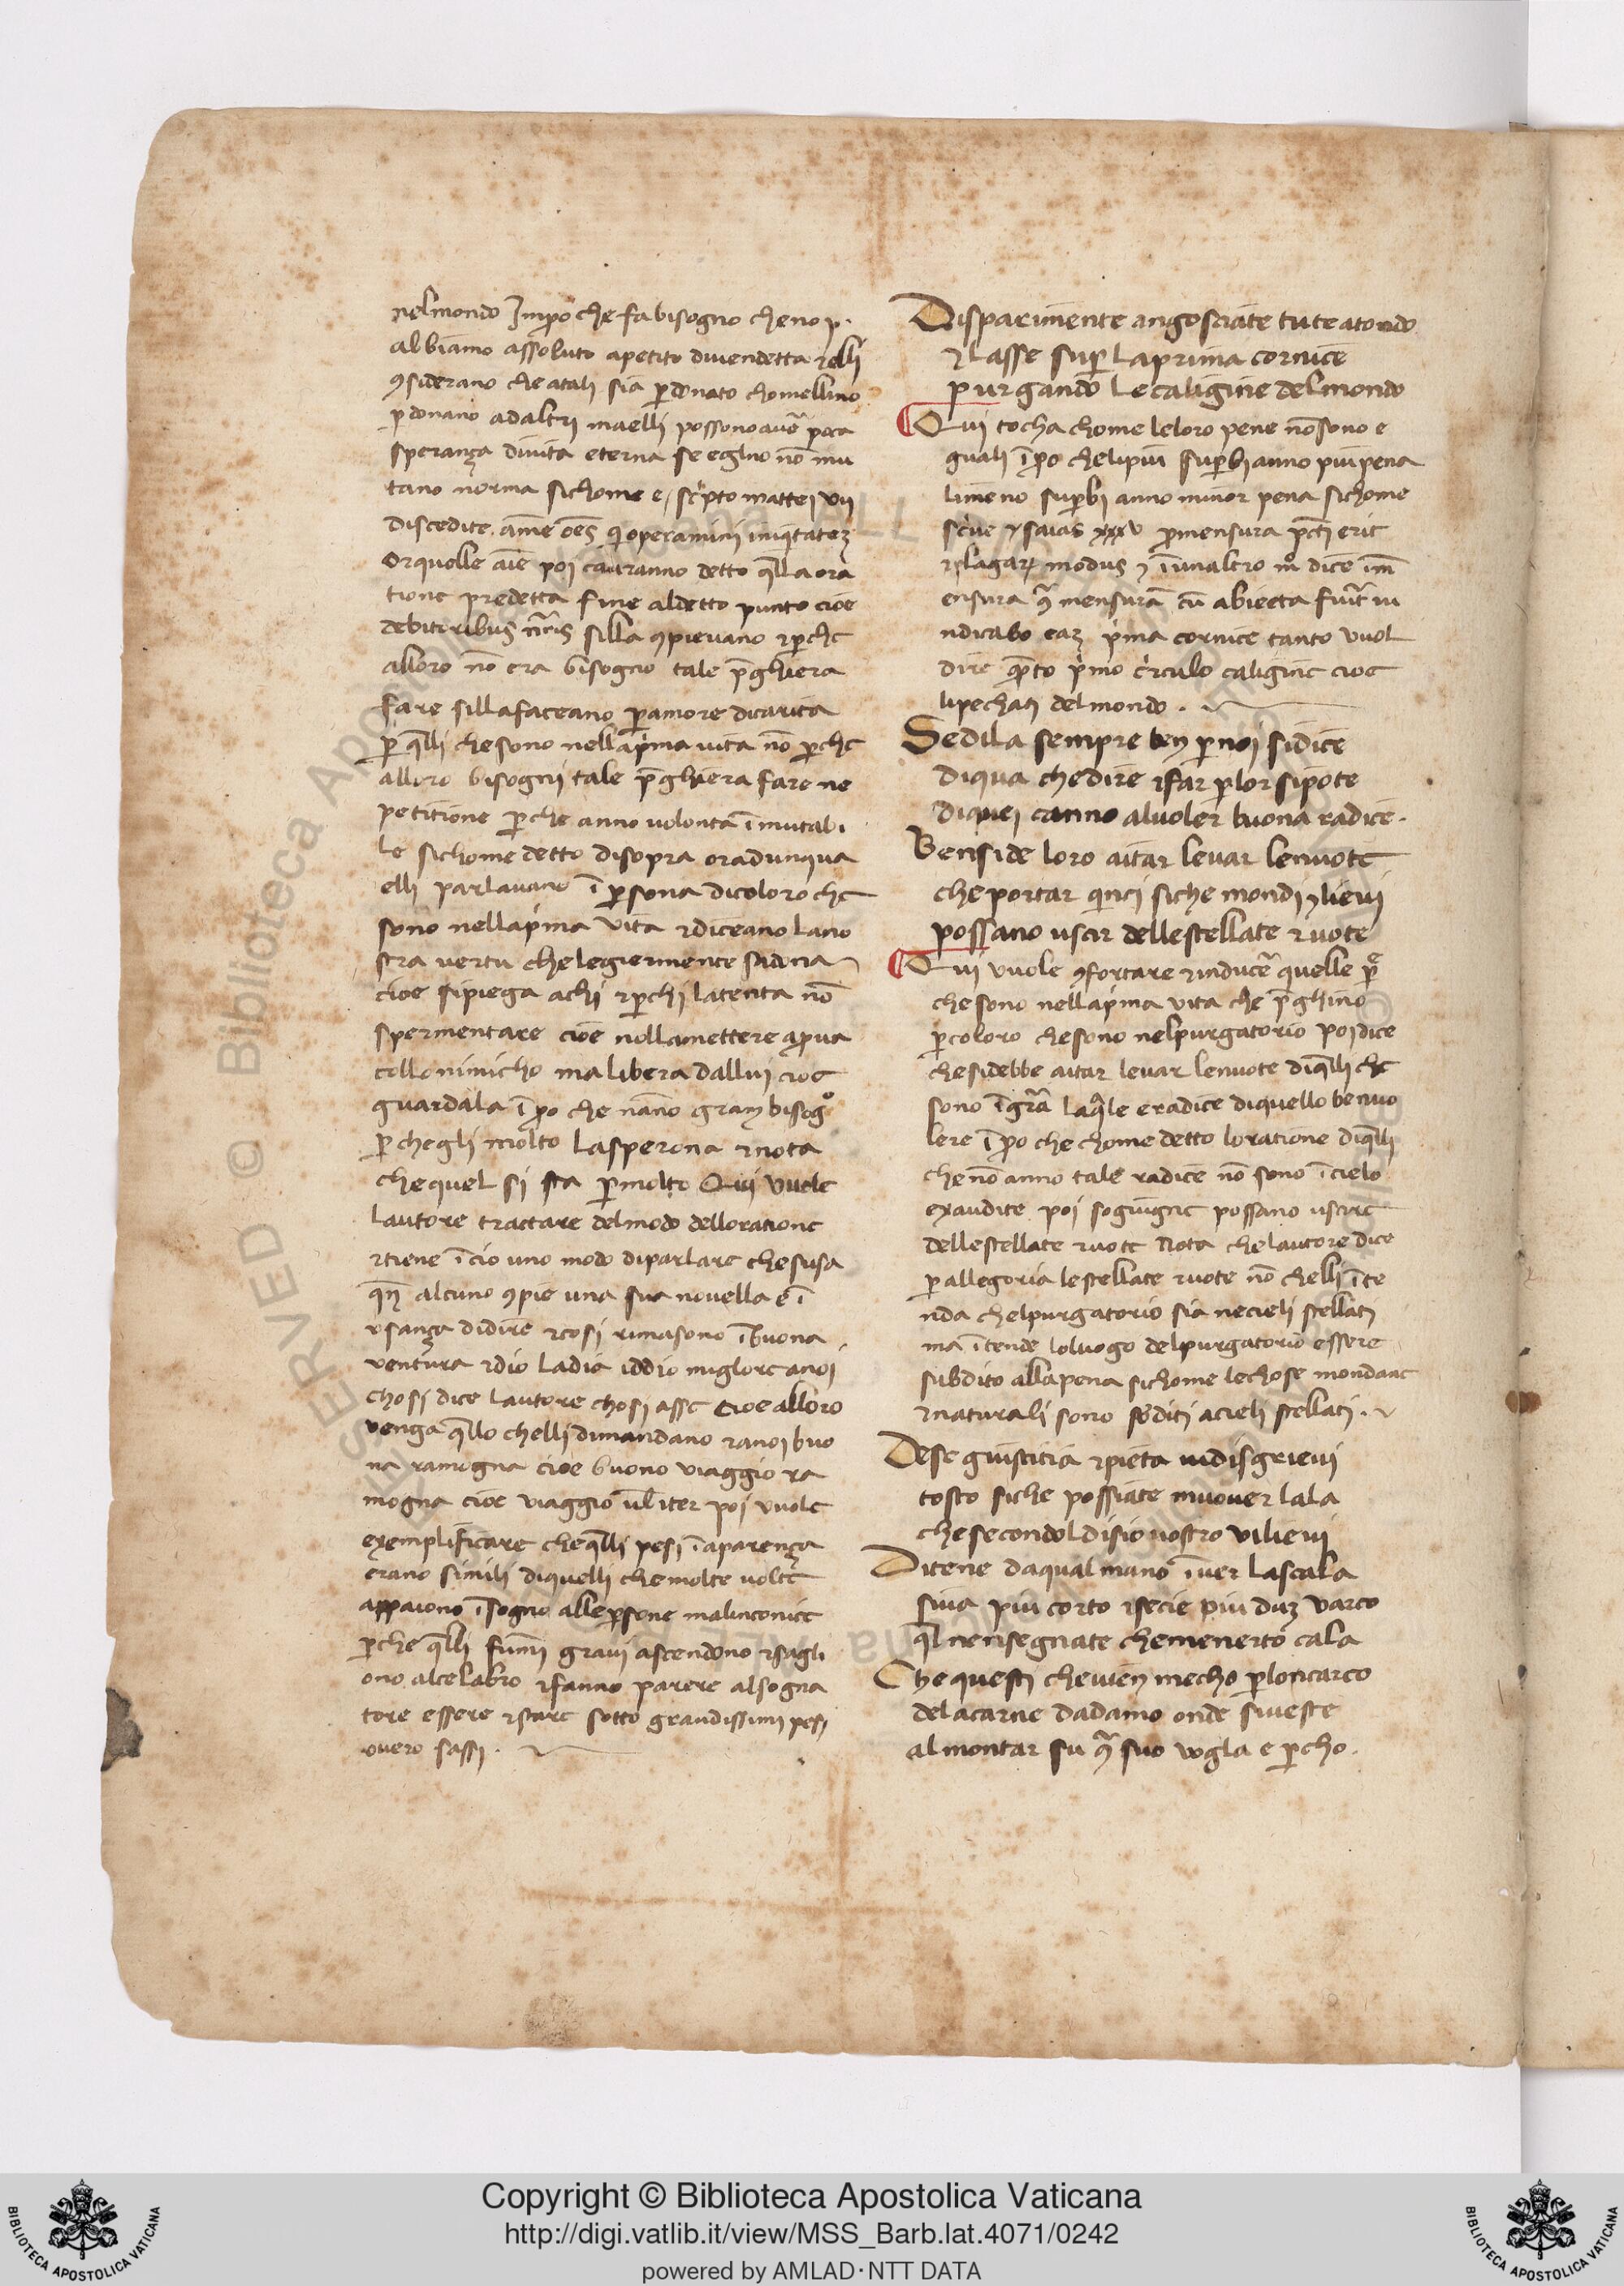 nelmondo Impo che fabisogno cheno p.
abbiamo assoluto apetito divendetta ⁊elli
ꝯsiderano che atali sia ꝑdonato chomellino
ꝑdonano adaltri maelli possono avē poca
sperança divita eterna se eglino nō mu
tano norma sichome e / scͥpto mattei vij
discedite. ame oēs qͥ operamini iniqͥtateꝫ
Or quelle aīe poi cauranno detto qlla ora
tione predetta fine aldetto punto cioe
debitoribus nr̄is silla ꝯpievano ⁊ꝑche
alloro nō era bisogno tale p̄ghiera
fare sillafaceano ꝑamore dicarita
ꝑ qlli chesono nellapͥma vita nō ꝑche
alloro bisogni tale p̄ghiera fare ne
petitione ꝑche anno volonta ī mutabi
le sichome detto disopra oradunqua
elli parlavano ī ꝑsona dicoloro che
sono nellapͥma vita ⁊diceano lano
stra vertu chelegiermente sadona
cioe sipiega achi ⁊ꝑchi latenta nō
spermentare cioe nollamettere aꝓua
collonimicho ma libera dallui cioe
guardala ī ꝑo che nāno gran bisogº
ꝑ chegli molto lasperona ⁊nota
chequel si sta ꝑmolto Qui vuole
lautore tractare delmodo delloratione
⁊tiene ī cio uno modo diparlare chesusa
qn̄ alcuno ꝯpie una sua novella e ī
usança didire ⁊cosi rimasono ī buona
ventura ⁊dio ladia iddio migliore anoi
chosi dice lautore chosi asse cioe alloro
venga qllo chelli dimandano ⁊anoi buo
na ramogna cioe buono viaggio ra
mogna cioe viaggio ul̄ iter poi vuole
exemplificare cheqlli pesi ī aparença
erano simili diquelli chemolte volte
appaiono ī sogno alleꝑsone malinconice
ꝑche qlli fumi gravi ascendono ⁊sagli
ono alcelabro ⁊fanno parere alsogna
tore essere ⁊stare sotto grandissimi pesi
overo sassi.
Disparimente angosciate tute atondo
⁊lasse suꝑ laprima cornice
purgando lecaligine delmondo
Qui tocha chome leloro pene nōsono e
guali ī ꝑo chelipiu suꝑbi anno piu pena
limeno suꝑbi anno minor pena sichome
scͥve ysaias xxxv ꝓmensura pcti erit
⁊plagaꝝ modus ⁊ ī unaltro mº dice ī m
ensura ꝯͣ mensurā cū abiecta fuit iu
ndicabo eaꝫ pͥma cornice tanto vuol
dire qͣto pͥmo cͥrculo caligine cioe
lipechati delmondo.
Sedila sempre ben ꝑnoi sidice
diqua chedire ⁊far ꝑlor sipote
diquei canno alvoler buona radice.
Benside loro aitar levar lenuote
che portar qinci siche mondi ⁊lievi
possano uscir dellestellate ⁊uote
Qui vuole ꝯfortare ⁊inducē quelle ꝑē
che sono nellapͥma vita che p̄ghino
ꝑcoloro chesono nelpurgatorio poi dice
chesidebbe aitar levar lenuote diqlli che
sono ī grā laqle eradice diquello benvo
lere ī ꝑo che chome detto loratione diqlli
chenō anno tale radice nō sono ī cielo
exaudite poi sogiugne possano uscire
dellestellate ruote Nota chelautore dice
ꝑ allegoria lestellate ruote nō chelli īte
nda chelpurgatorio sia necieli stellati
ma ī tende loluogo delpurgatorio essere
subdito allapena sichome lechose mondane
⁊naturali sono sb̄diti acieli stellati.
Dese giusticia ⁊pieta vidisgrievi
tosto siche possiate muover lala
chesecondol disio vostro vilievi
Ditene daqual mano ī ver lascala
siva piu corto ⁊secie piu duꝫ varco
ql nensegnate chemenerto cala
Che questi chevien mecho ꝑloncarco
delacarne dadamo onde siveste
almontar su ꝯͣ suo vogla e ꝑcho.
Copyright © Biblioteca Apostolica Vaticana
http://digi.vatlib.it/view/MSS_Barb.lat.4071/0242
powered by AMLAD·NTT DATA
BIBLIOTECA APOSTOLICA VATICANA
BIBLIOTECA APOSTOLICA VATICANA